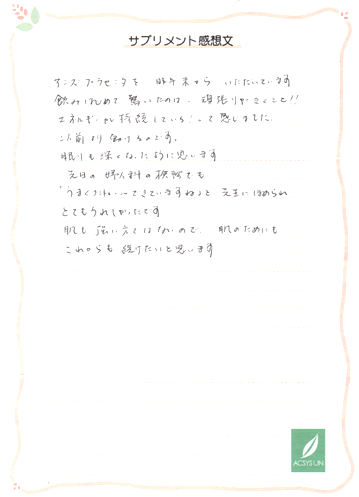 サプリメント感想文
アンズプラセンタを 昨年末から いただいています
飲みはじめて 驚いたのは、頑張りがきくこと!!
エネルギーが持続している!って感じました。
以前より動けるのです。
眠りも深くなったように思います
先日の婦人科の検診でも
"うまくつかえていますね"と 先生にほめられ
とてもうれしかったです
肌も強い方ではないので、肌のためにも
これからも続けたいと思います
ACSYS UN